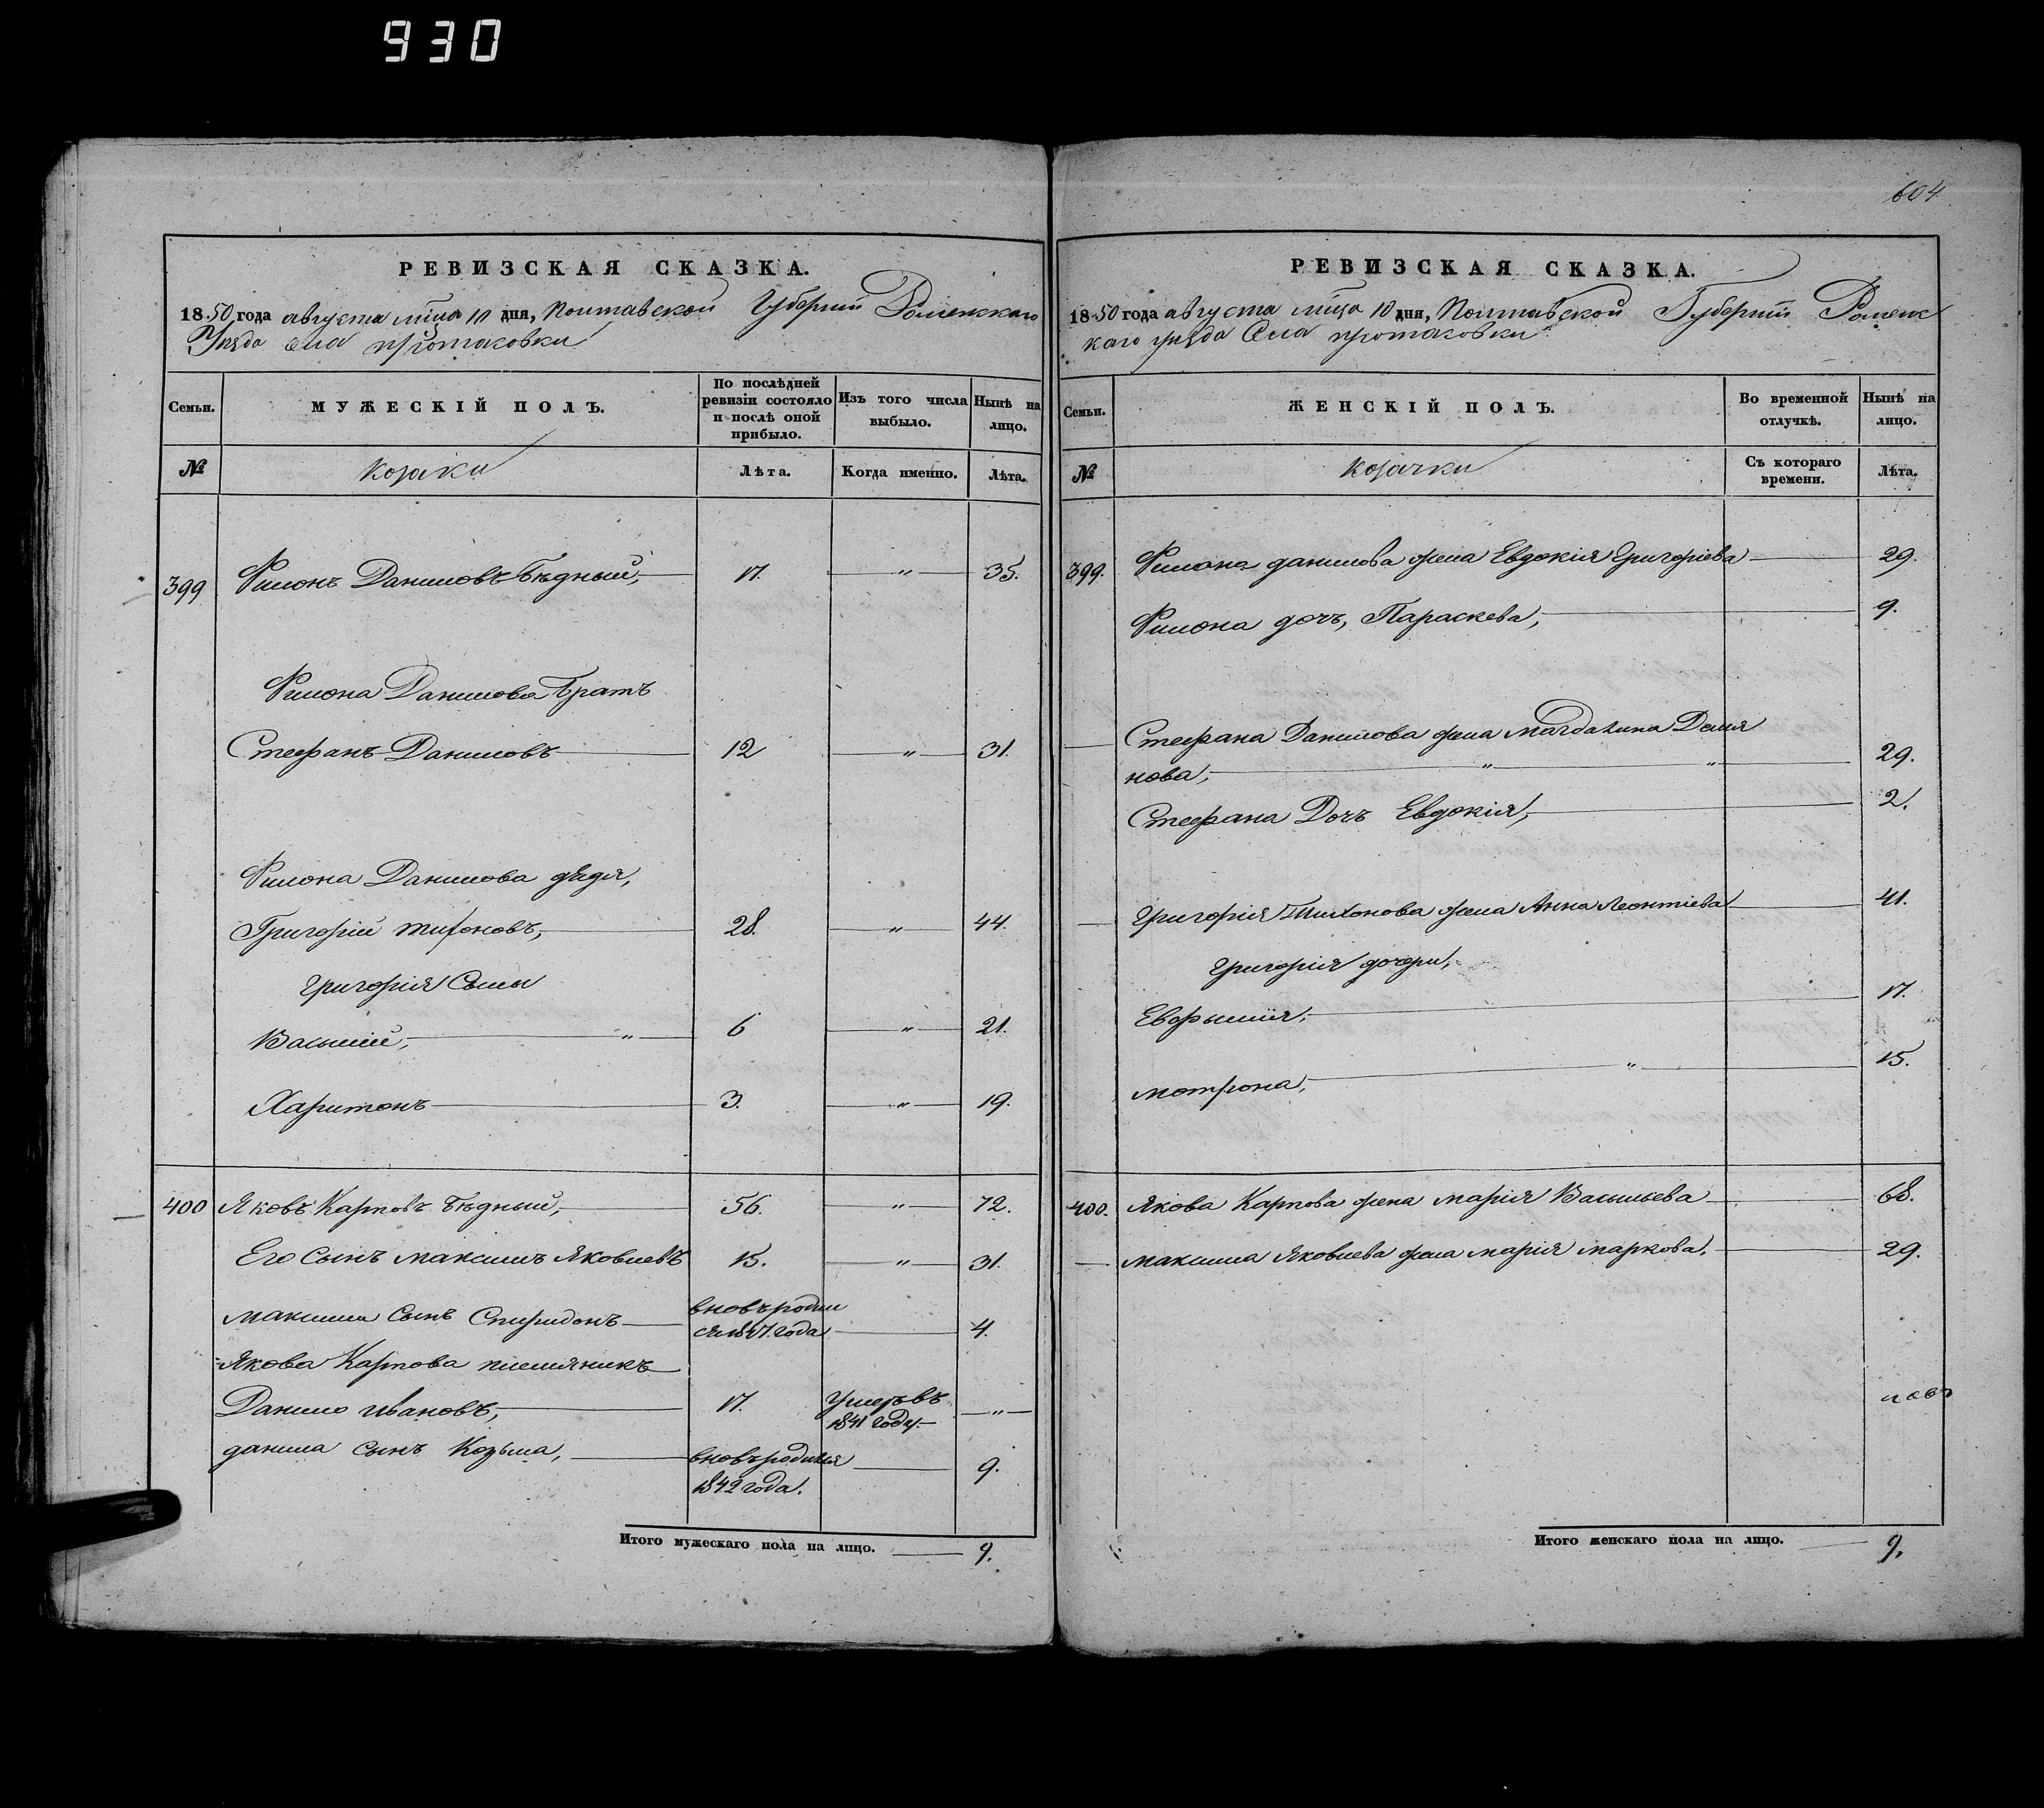 930
РЕВИЗСКАЯ СКАЗКА.
1850 года августа мца 10 дня, Полтавской Губерніи Роменскаго
Уѣзда Села протасовки
Семьи.
МУЖЕСКІЙ ПОЛЪ.
По послѣдней ревизіи состояло и послѣ оной прибыло.
Изъ того числа выбыло.
Нынѣ на лицо.
№
Козаки
Лѣта.
Когда именно.
Лѣта.
399 Филонъ Даниловъ Бѣдный, 17. " 35.
Филона Данилова Братъ
Стефанъ Даниловъ 12 " 31.
Филона Данилова дядя,
Григорій тихоновъ, 28. " 44.
Григорія Сыны
Василій, " 6 " 21.
Харитонъ 3. " 19.
400 Яковъ Карповъ Бѣдный, 56. " 72.
Его Сынъ максимъ Яковлевъ 15. " 31.
максима Сынъ Спиридонъ вновь родил
ся 1847 года 4.
Якова Карпова племяникъ
Данило ивановъ, 17. Умеръ въ
1841 году. "
данила сынъ Козьма, вновь родился
1842 года. 9.
Итого мужескаго пола на лицо. 9.
604
РЕВИЗСКАЯ СКАЗКА.
1850 года августа мца 10 дня, Полтавской Губерніи Роменс
каго уѣзда Села протасовки
Семьи.
ЖЕНСКІЙ ПОЛЪ.
Во временной отлучкѣ.
Нынѣ на лицо.
№
Козачки
Съ котораго времени.
Лѣта.
399. Филона данилова жена Евдокія Григоріева 29.
Филона дочь, Параскева, 9.
Стефана Данилова жена магдалина Демя
нова, " " 29.
Стефана Дочь Евдокія, 2.
Григорія Тихонова жена Анна Леонтіева 41.
Григорія дочери,
Евфимія, 17.
мотрона, " 15.
400. Якова Карпова жена марія Васильева 68.
максима Яковлева жена марія маркова. 29.
Итого женскаго пола на лицо. 9.